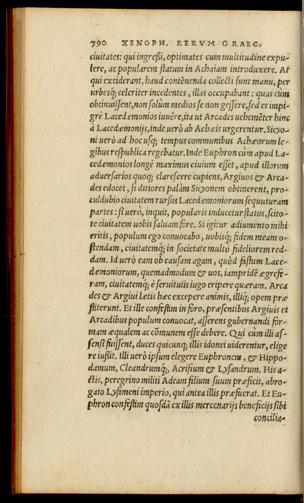 790 XENOPH. RERVM GRAEC.
ciuitates: qui ingreßi, optimates cum multitudine expu-
lere, ac popularem statum in Achaiam introduxere. At
qui exciderant, haud contẽnenda collecti sunt manu, per
urbesq; celeriter incedentes, illas occupabant: quas cùm
obtinuissent, non solùm medios se non gessere, sed et impi-
grè Lacedæmonios iuuêre, ita ut Arcades uehemẽter hinc
à Lacedæmonijs, inde uerò ab Achæis urgerentur. Sicyo-
ni uerò ad hoc usq; tempus communibus Achæorum le-
gibus respublica regebatur. Inde Euphron cùm apud La-
cedæmonios longè maximus ciuium esset, apud illorum
aduersarios quoq; clarescere cupiens, Argiuos & Arca-
des edocet, si ditiores palàm Sicyonem obtinerent, pro-
culdubio ciuitatem rursus Lacedæmoniorum sequuturam
partes: si uerò, inquit, popularis inducetur status, scito-
te ciuitatem uobis saluam fore. Si igitur adiumento mihi
eritis, populum ego conuocabo, uobisq; fidem meam o-
stendam, ciuitatemq; in societate multò fideliorem red-
dam. Id uerò eam ob causam agam, quòd fastum Lace-
dæmoniorum, quemadmodum & uos, iampridẽ ægrè fe-
ram, ciuitatemq; è seruitutis iugo eripere quæram. Arca
des & Argiui lætis hæc excepere animis, illiq; opem præ
stiterunt. Et ille confestim in foro, præsentibus Argiuis et
Arcadibus populum conuocat, asserens gubernandi for-
mam æqualem ac cõmunem esse debere. Qui cùm illi as-
sensi fuissent, duces quicunq; illis idonei uiderentur, elige
re iußit. Illi uerò ipsum elegere Euphronem, & Hippo-
damum, Cleandrumq;, Acrisium & Lysandrum. His a-
ctis, peregrino militi Adeam filium suum præficit, abro-
gato Lysimeni imperio, qui antea illis præfuerat. Et Eu-
phron confestim quosdã ex illis mercenarijs beneficijs sibi
concilia-